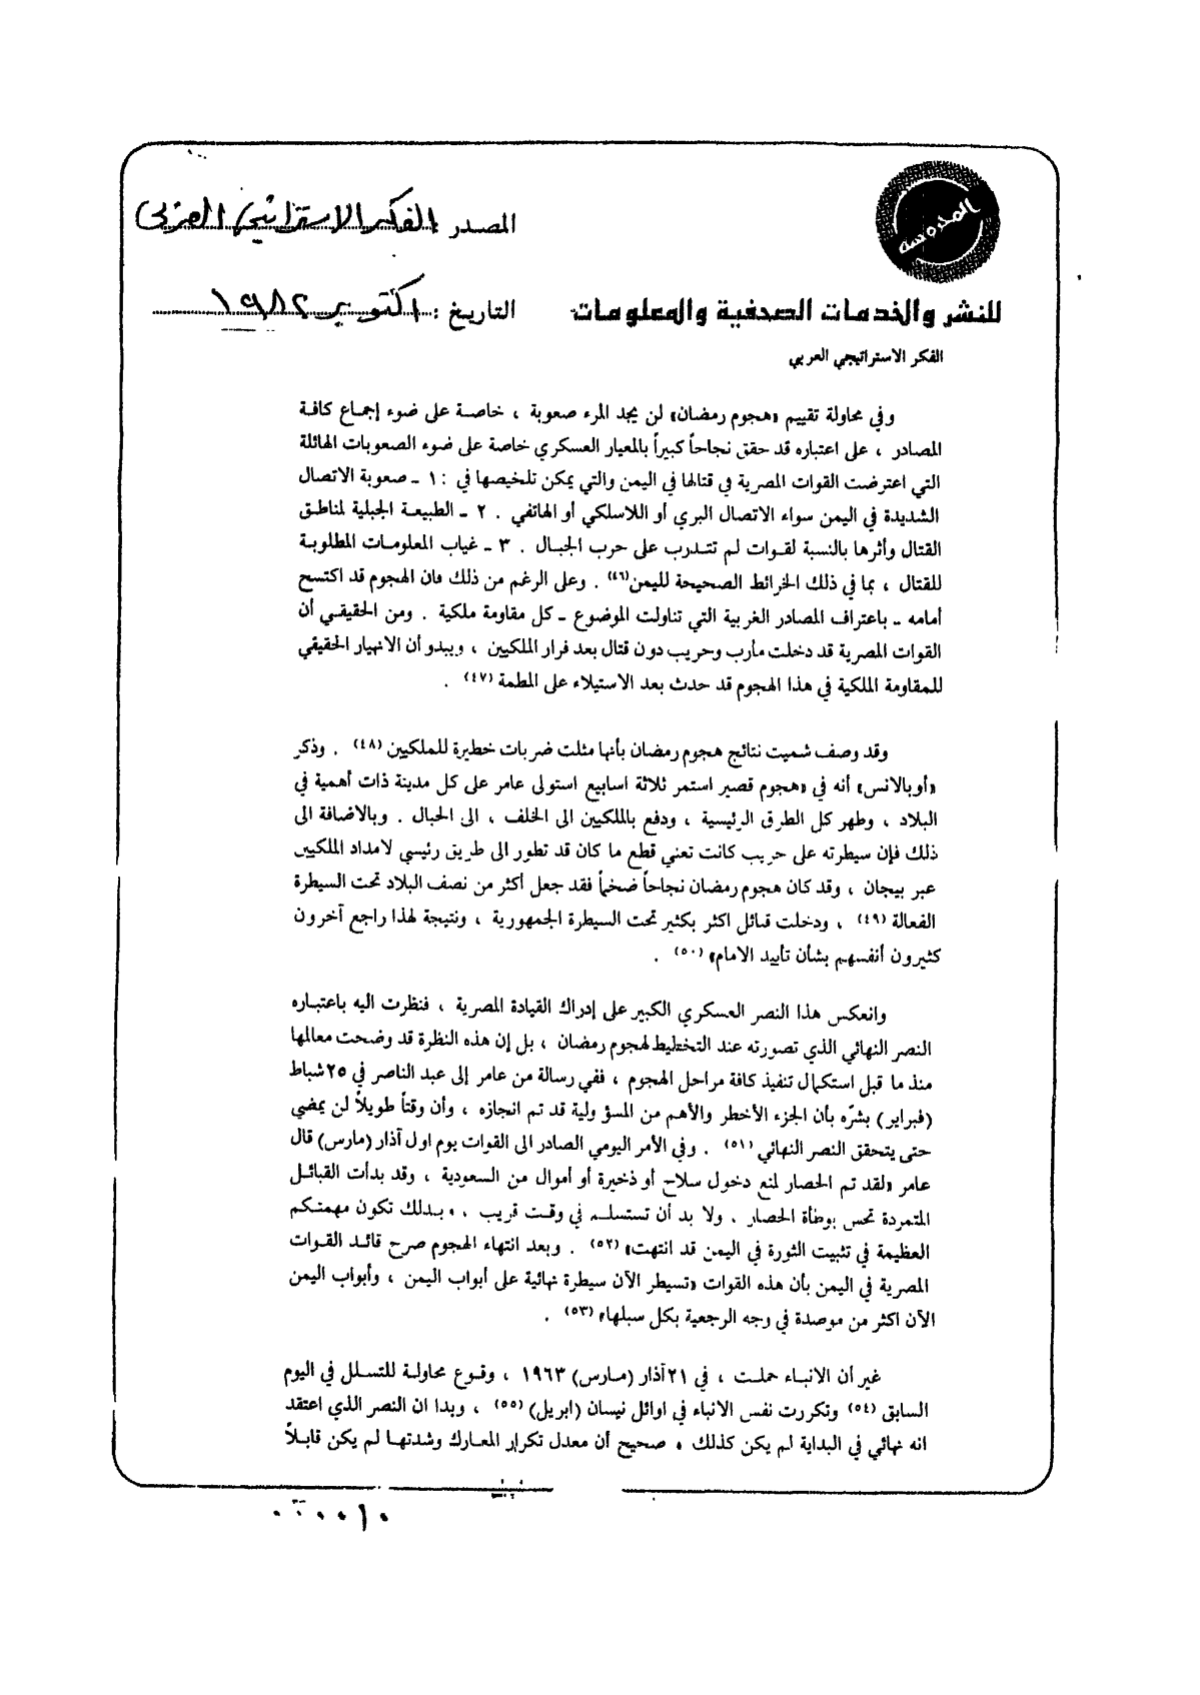 المحروسة
المصدر : الفكر الاستراتيجي العربي
للنشر والخدمات الصحفية والمعلومات
التاريخ : اكتوبر ١٩٨٢
الفكر الاستراتيجي العربي
وفي محاولة تقييم «هجوم رمضان» لن يجد المرء صعوبة ، خاصة على ضوء إجماع كافة
المصادر ، على اعتباره قد حقق نجاحاً كبيراً بالمعيار العسكري خاصة على ضوء الصعوبات الهائلة
التي اعترضت القوات المصرية في قتالها في اليمن والتي يمكن تلخيصها في : ١ ـ صعوبة الاتصال
الشديدة في اليمن سواء الاتصال البري أو اللاسلكي أو الهاتفي . ٢ ـ الطبيعة الجبلية لمناطق
القتال وأثرها بالنسبة لقوات لم تتدرب على حرب الجبال . ٣ ـ غياب المعلومات المطلوبة
للقتال ، بما في ذلك الخرائط الصحيحة لليمن (٤٦) . وعلى الرغم من ذلك فان الهجوم قد اكتسح
أمامه ـ باعتراف المصادر الغربية التي تناولت الموضوع ـ كل مقاومة ملكية . ومن الحقيقي أن
القوات المصرية قد دخلت مأرب وحريب دون قتال بعد فرار الملكيين ، ويبدو أن الانهيار الحقيقي
للمقاومة الملكية في هذا الهجوم قد حدث بعد الاستيلاء على المطمة (٤٧) .
وقد وصف شميت نتائج هجوم رمضان بأنها مثلت ضربات خطيرة للملكيين (٤٨) . وذكر
«أوبالانس» أنه في «هجوم قصير استمر ثلاثة اسابيع استولى عامر على كل مدينة ذات أهمية في
البلاد ، وطهر كل الطرق الرئيسية ، ودفع بالملكيين الى الخلف ، الى الجبال . وبالاضافة الى
ذلك فإن سيطرته على حريب كانت تعني قطع ما كان قد تطور الى طريق رئيسي لامداد الملكيين
عبر بيجان ، وقد كان هجوم رمضان نجاحاً ضخماً فقد جعل أكثر من نصف البلاد تحت السيطرة
الفعالة (٤٩) ، ودخلت قبائل اكثر بكثير تحت السيطرة الجمهورية ، ونتيجة لهذا راجع آخرون
كثيرون أنفسهم بشأن تأييد الامام» (٥٠) .
وانعكس هذا النصر العسكري الكبير على إدراك القيادة المصرية ، فنظرت اليه باعتباره
النصر النهائي الذي تصورته عند التخطيط لهجوم رمضان ، بل إن هذه النظرة قد وضحت معالمها
منذ ما قبل استكمال تنفيذ كافة مراحل الهجوم ، ففي رسالة من عامر إلى عبد الناصر في ٢٥ شباط
(فبراير) بشّره بأن الجزء الأخطر والأهم من المسؤولية قد تم انجازه ، وأن وقتاً طويلاً لن يمضي
حتى يتحقق النصر النهائي (٥١) . وفي الأمر اليومي الصادر الى القوات يوم اول آذار (مارس) قال
عامر «لقد تم الحصار لمنع دخول سلاح أو ذخيرة أو أموال من السعودية ، وقد بدأت القبائل
المتمردة تحس بوطأة الحصار . ولا بد أن تستسلم في وقت قريب . وبذلك تكون مهمتكم
العظيمة في تثبيت الثورة في اليمن قد انتهت» (٥٢) . وبعد انتهاء الهجوم صرح قائد القوات
المصرية في اليمن بأن هذه القوات «تسيطر الآن سيطرة نهائية على أبواب اليمن ، وأبواب اليمن
الآن اكثر من موصدة في وجه الرجعية بكل سبلها» (٥٣) .
غير أن الانباء حملت ، في ٢١ آذار (مارس) ١٩٦٣ ، وقوع محاولة للتسلل في اليوم
السابق (٥٤) وتكررت نفس الانباء في اوائل نيسان (ابريل) (٥٥) ، وبدا ان النصر الذي اعتقد
انه نهائي في البداية لم يكن كذلك . صحيح أن معدل تكرار المعارك وشدتها لم يكن قابلاً